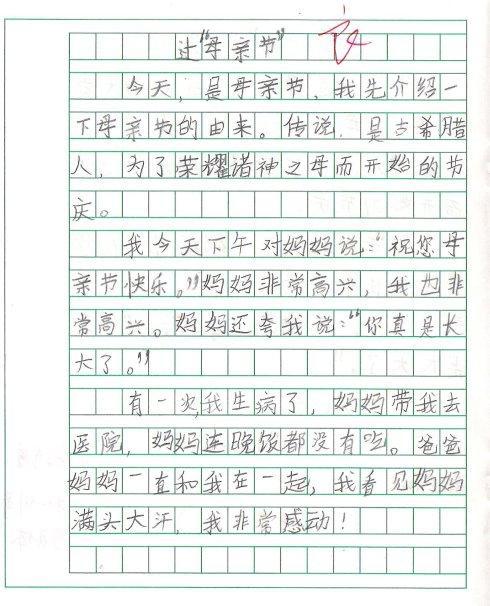 过“母亲节”
今天，是母亲节，我先介绍一
下母亲节的由来。传说，是古希腊
人，为了荣耀诸神之母而开始的节
庆。
我今天下午对妈妈说：“祝您母
亲节快乐。”妈妈非常高兴，我也非
常高兴。妈妈还夸我说：“你真是长
大了。”
有一次，我生病了，妈妈带我去
医院，妈妈连晚饭都没有吃。爸爸
妈妈一直和我在一起，我看见妈妈
满头大汗，我非常感动！